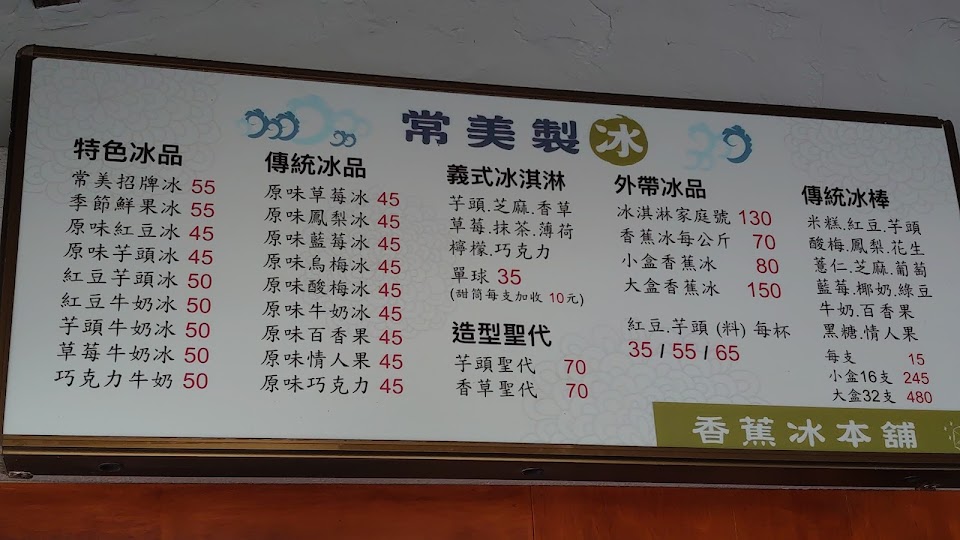 常美製冰
特色冰品
常美招牌冰 55
季節鮮果冰 55
原味紅豆冰 45
原味芋頭冰 45
紅豆芋頭冰 50
紅豆牛奶冰 50
芋頭牛奶冰 50
草莓牛奶冰 50
巧克力牛奶 50
傳統冰品
原味草莓冰 45
原味鳳梨冰 45
原味藍莓冰 45
原味烏梅冰 45
原味酸梅冰 45
原味牛奶冰 45
原味百香果 45
原味情人果 45
原味巧克力 45
義式冰淇淋
芋頭.芝麻.香草
草莓.抹茶.薄荷
檸檬.巧克力
單球 35
(甜筒每支加收 10元)
造型聖代
芋頭聖代 70
香草聖代 70
外帶冰品
冰淇淋家庭號 130
香蕉冰每公斤 70
小盒香蕉冰 80
大盒香蕉冰 150
紅豆.芋頭 (料) 每杯
35 / 55 / 65
傳統冰棒
米糕.紅豆.芋頭
酸梅.鳳梨.花生
薏仁.芝麻.葡萄
藍莓.椰奶.綠豆
牛奶.百香果
黑糖.情人果
每支 15
小盒16支 245
大盒32支 480
香蕉冰本舖